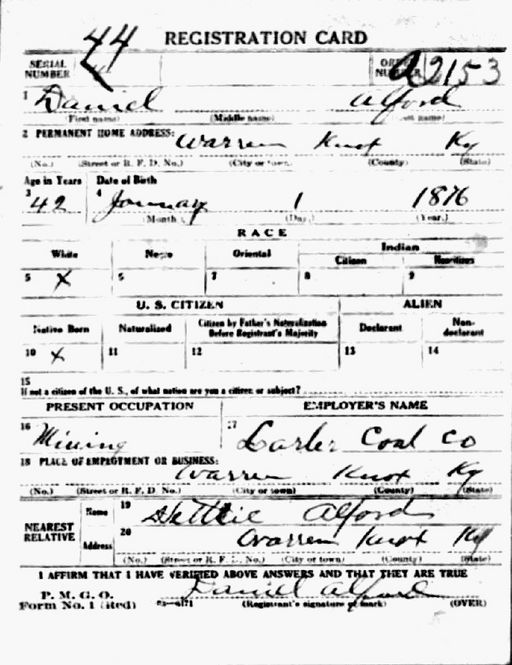 44
REGISTRATION CARD
SERIAL NUMBER
ORDER NUMBER A2153
1 Daniel Alford
(First name) (Middle name) (Last name)
2 PERMANENT HOME ADDRESS: Warren Knox Ky
(No.) (Street or R. F. D. No.) (City or town) (County) (State)
Age in Years Date of Birth
3 42 4 January 1 1876
(Month) (Day) (Year.)
RACE
White Negro Oriental Indian
Citizen Noncitizen
5 X 6 7 8 9
U. S. CITIZEN ALIEN
Native Born Naturalized Citizen by Father's Naturalization Before Registrant's Majority Declarant Non-declarant
10 X 11 12 13 14
15
If not a citizen of the U. S., of what nation are you a citizen or subject?
PRESENT OCCUPATION EMPLOYER'S NAME
16 Mining 17 Coal Co
18 PLACE OF EMPLOYMENT OR BUSINESS:
Warren Knox Ky
(No.) (Street or R. F. D. No.) (City or town) (County) (State)
NEAREST RELATIVE
Name 19 Alford
Address 20 Warren Knox Ky
(No.) (Street or R. F. D. No.) (City or town) (County) (State)
I AFFIRM THAT I HAVE VERIFIED ABOVE ANSWERS AND THAT THEY ARE TRUE
P. M. G. O.
Form No. 1 Daniel Alford
(Registrant's signature or mark) (OVER)